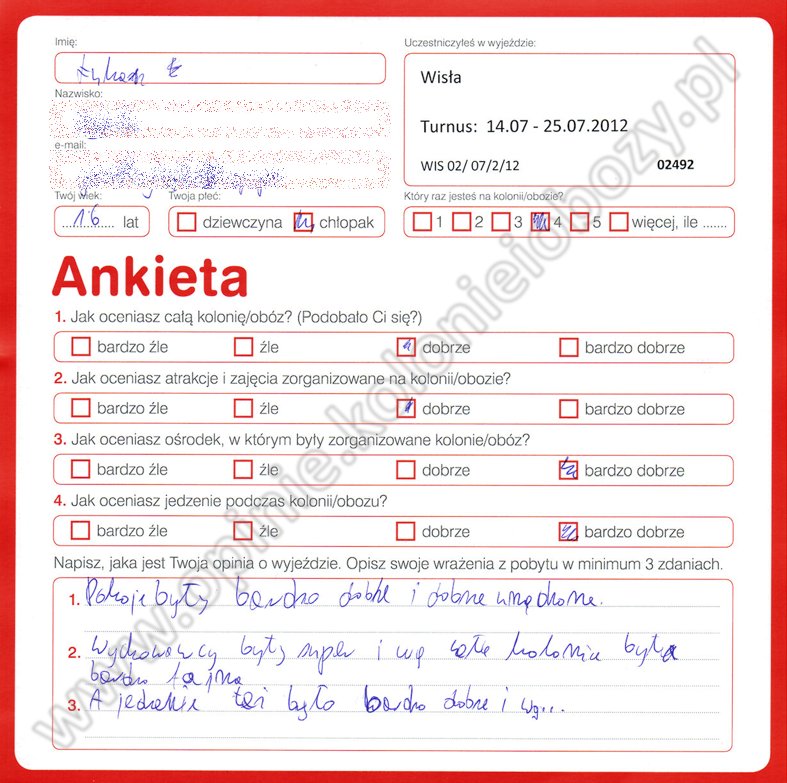 Imię:
Uczestniczyłeś w wyjeździe:
Łukasz
Wisła
Nazwisko:
Turnus: 14.07 - 25.07.2012
e-mail:
WIS 02/ 07/2/12 02492
Twój wiek: Twoja płeć: Który raz jesteś na kolonii/obozie?
16 lat dziewczyna chłopak 1 2 3 4 5 więcej, ile .......
Ankieta
1. Jak oceniasz całą kolonię/obóz? (Podobało Ci się?)
bardzo źle źle dobrze bardzo dobrze
2. Jak oceniasz atrakcje i zajęcia zorganizowane na kolonii/obozie?
bardzo źle źle dobrze bardzo dobrze
3. Jak oceniasz ośrodek, w którym były zorganizowane kolonie/obóz?
bardzo źle źle dobrze bardzo dobrze
4. Jak oceniasz jedzenie podczas kolonii/obozu?
bardzo źle źle dobrze bardzo dobrze
Napisz, jaka jest Twoja opinia o wyjeździe. Opisz swoje wrażenia z pobytu w minimum 3 zdaniach.
1. Pokoje były bardzo dobre i dobrze urządzone.
2. Wychowawcy byly super i całe kolonia była
bardzo fajna
3. A jedzenie też było bardzo dobre i
www.opinie.kolonieiobozy.pl